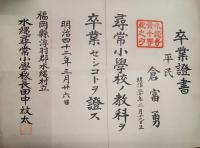 卒業證書
平民
倉富勇
尋常小學校ノ教科ヲ
卒業セシコトヲ證ス
明治四十二年三月廿六日
福岡縣浮羽郡水縄村立
水縄尋常小學校長田中紋太